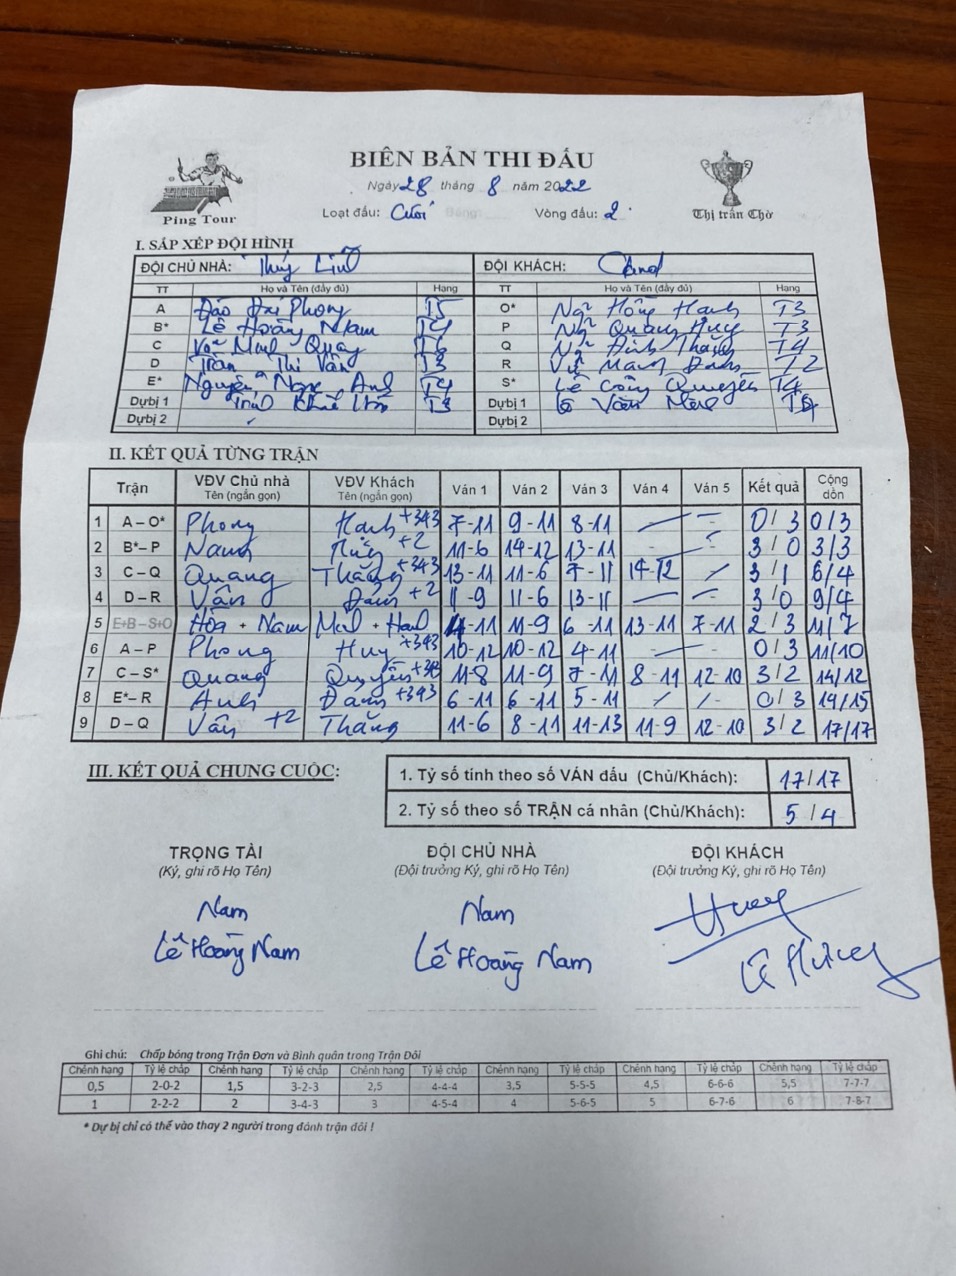 BIÊN BẢN THI ĐẤU
Ngày 28 tháng 8 năm 2022
Ping Tour
Loạt đấu: Cuối Bảng: Vòng đấu: 2
Thị trấn Chờ
I. SẮP XẾP ĐỘI HÌNH
ĐỘI CHỦ NHÀ: Thùy Linh ĐỘI KHÁCH:
TT Họ và Tên (đầy đủ) Hạng TT Họ và Tên (đầy đủ) Hạng
A Đào Đại Phong T5 O* Ngô Hồng Hanh T3
B* Lê Hoàng Nam T4 P Ngô Quang Huy T3
C Quang T6 Q Ngô Đình Thắng T4
D Trần Thị Vân T3 R T2
E* Nguyễn Ngọc Anh T4 S* Lê Công Quyền T4
Dự bị 1 Dự bị 1 Lê Văn
Dự bị 2 Dự bị 2
II. KẾT QUẢ TỪNG TRẬN
Trận VĐV Chủ nhà Tên (ngắn gọn) VĐV Khách Tên (ngắn gọn) Ván 1 Ván 2 Ván 3 Ván 4 Ván 5 Kết quả Cộng dồn
1 A – O* Phong Hanh +343 7-11 9-11 8-11 - - 0/3 0/3
2 B* – P Nam +2 11-6 14-12 13-11 - - 3/0 3/3
3 C – Q Quang Thắng +343 13-11 11-6 7-11 14-12 / 3/1 6/4
4 D – R Vân +2 11-9 11-6 13-11 - - 3/0 9/4
5 E+B – S+O Hòa + Nam 11-9 6-11 13-11 7-11 2/3 11/7
6 A – P Phong Huy +343 10-12 10-12 4-11 - - 0/3 11/10
7 C – S* Quang Quyền 11-8 11-9 7-11 8-11 12-10 3/2 14/12
8 E* – R Anh +343 6-11 6-11 5-11 / / 0/3 14/15
9 D – Q Vân +2 Thắng 11-6 8-11 11-13 11-9 12-10 3/2 17/17
III. KẾT QUẢ CHUNG CUỘC:
1. Tỷ số tính theo số VÁN đấu (Chủ/Khách): 17/17
2. Tỷ số theo số TRẬN cá nhân (Chủ/Khách): 5/4
TRỌNG TÀI ĐỘI CHỦ NHÀ ĐỘI KHÁCH
(Ký, ghi rõ Họ Tên) (Đội trưởng Ký, ghi rõ Họ Tên) (Đội trưởng Ký, ghi rõ Họ Tên)
Nam Nam
Lê Hoàng Nam Lê Hoàng Nam
Ghi chú: Chấp bóng trong Trận Đơn và Bình quân trong Trận Đôi
Chênh hạng Tỷ lệ chấp Chênh hạng Tỷ lệ chấp Chênh hạng Tỷ lệ chấp Chênh hạng Tỷ lệ chấp Chênh hạng Tỷ lệ chấp Chênh hạng Tỷ lệ chấp
0,5 2-0-2 1,5 3-2-3 2,5 4-4-4 3,5 5-5-5 4,5 6-6-6 5,5 7-7-7
1 2-2-2 2 3-4-3 3 4-5-4 4 5-6-5 5 6-7-6 6 7-8-7
* Dự bị chỉ có thể vào thay 2 người trong đánh trận đôi !